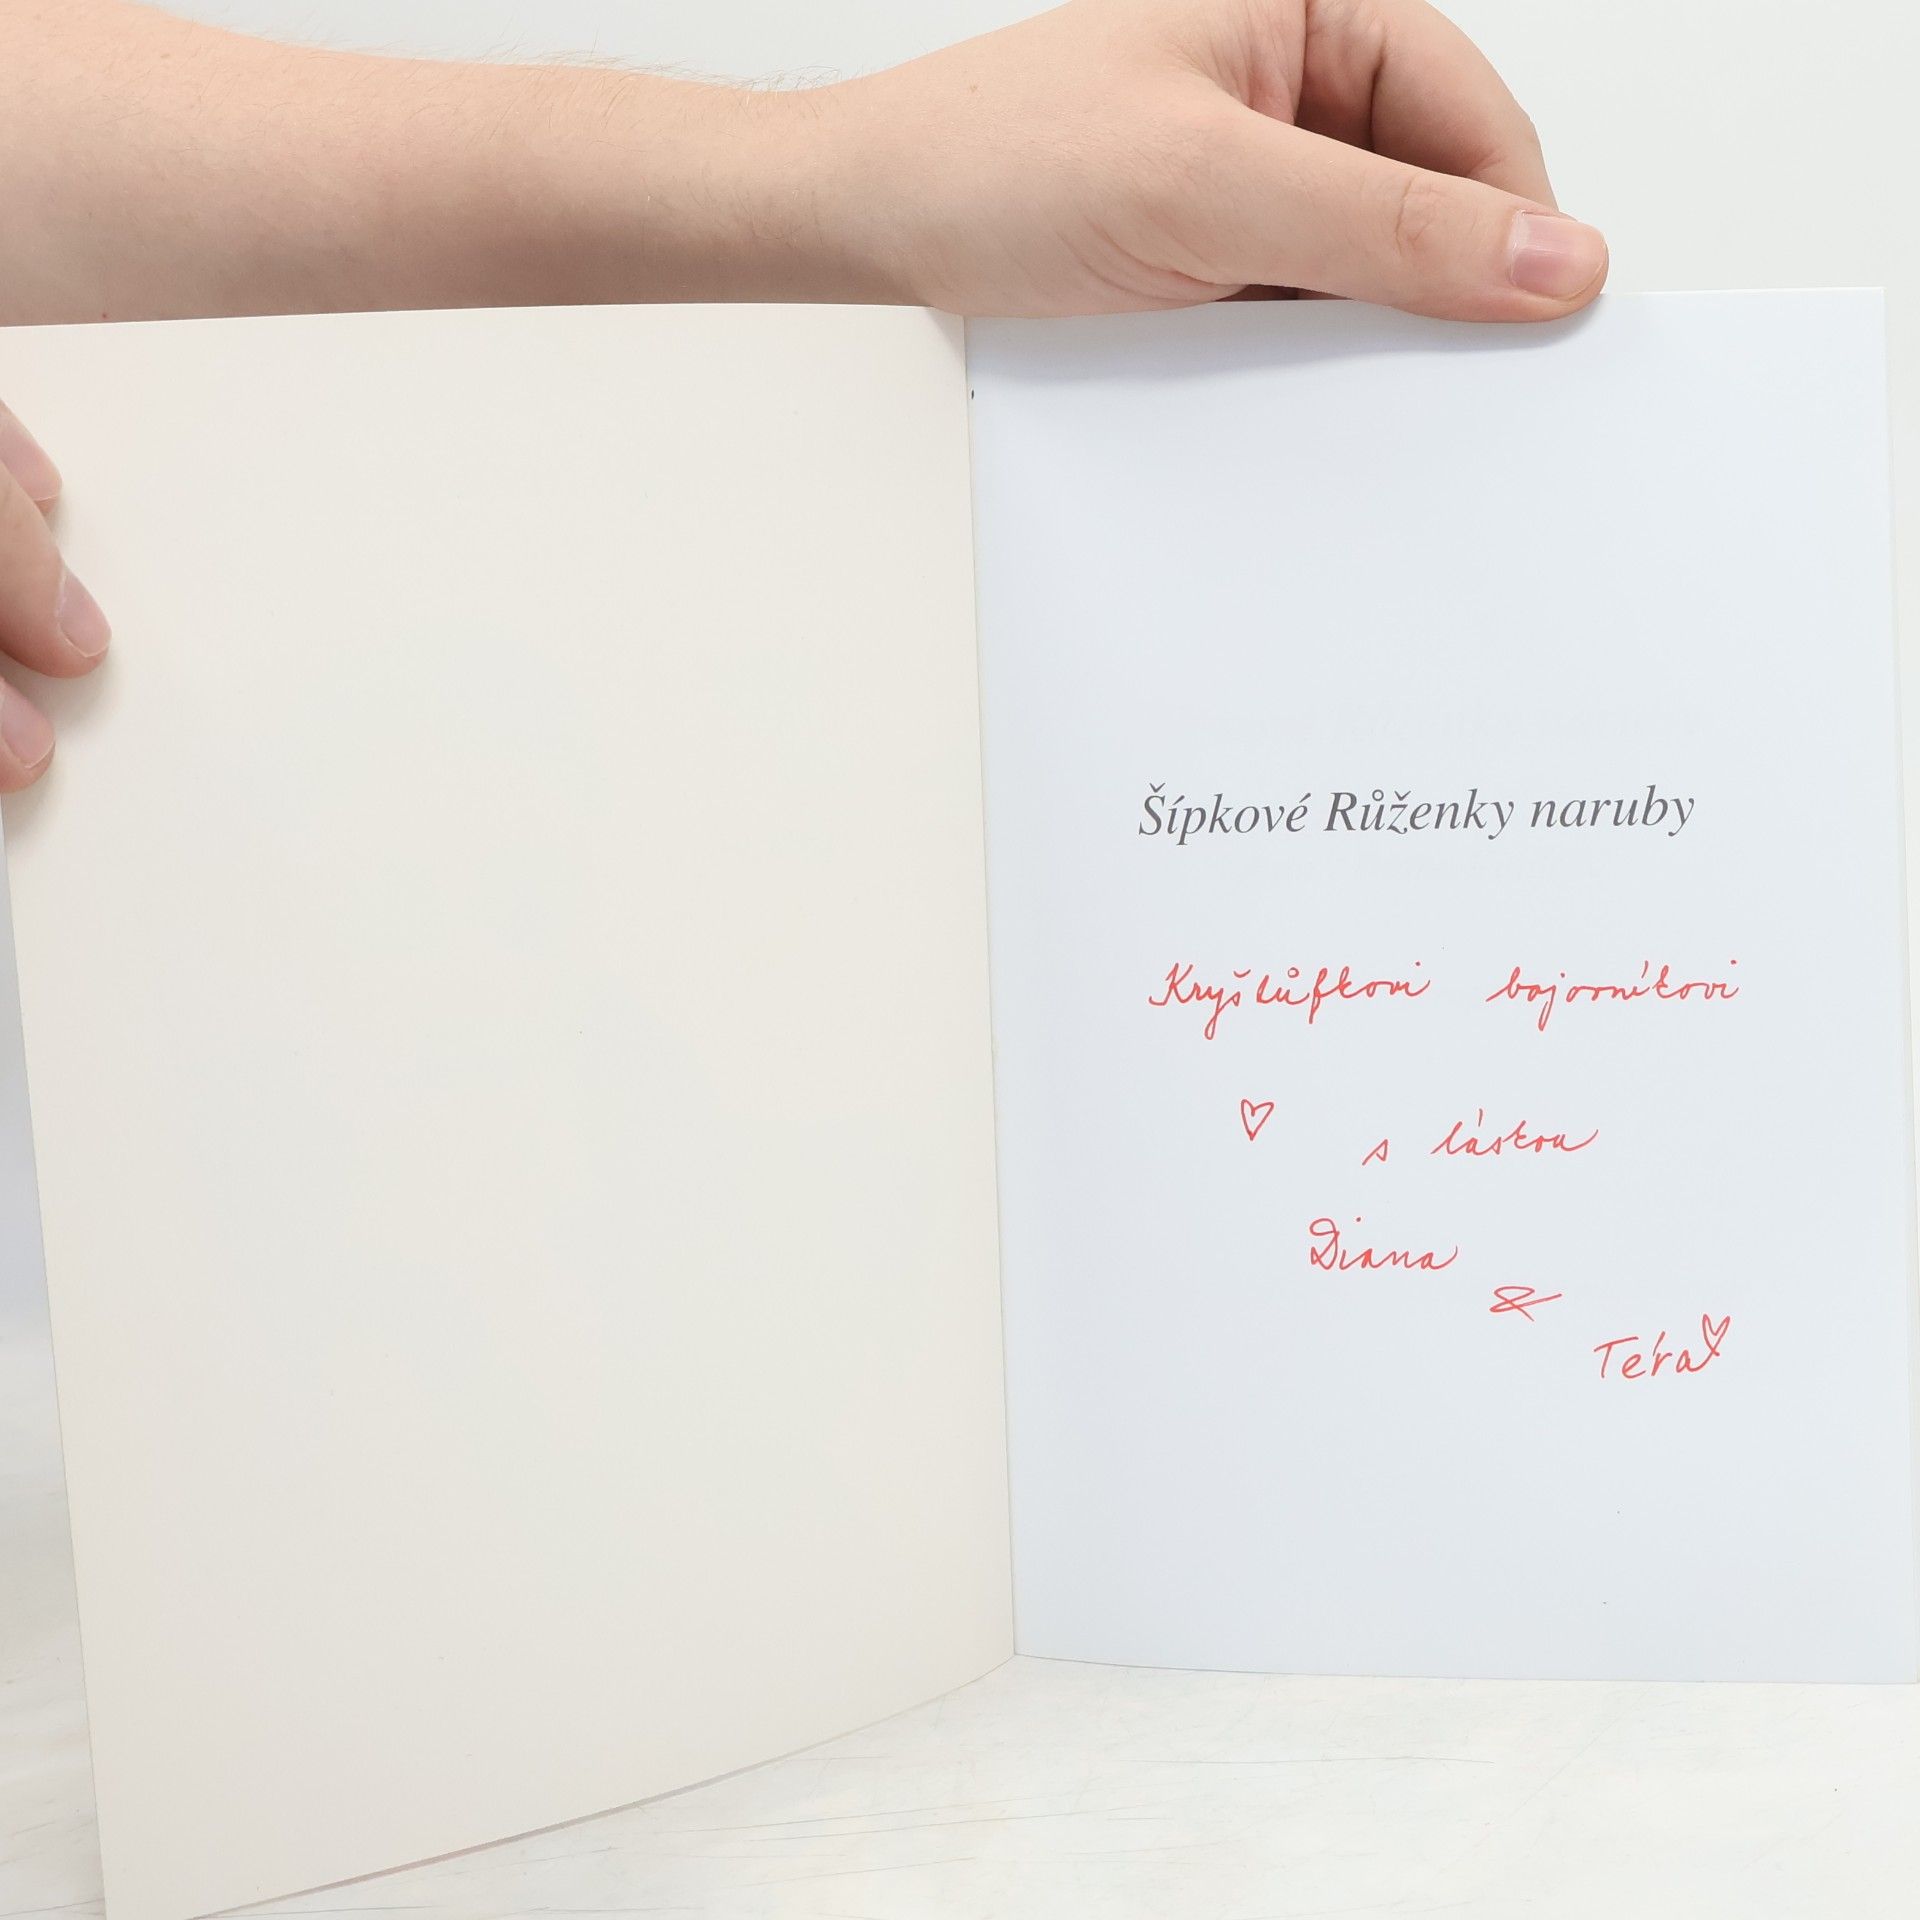 Šípkové Růženky naruby
Kryštůfkovi bojovníkovi
♡ s láskou
Diana
&
Téra♡